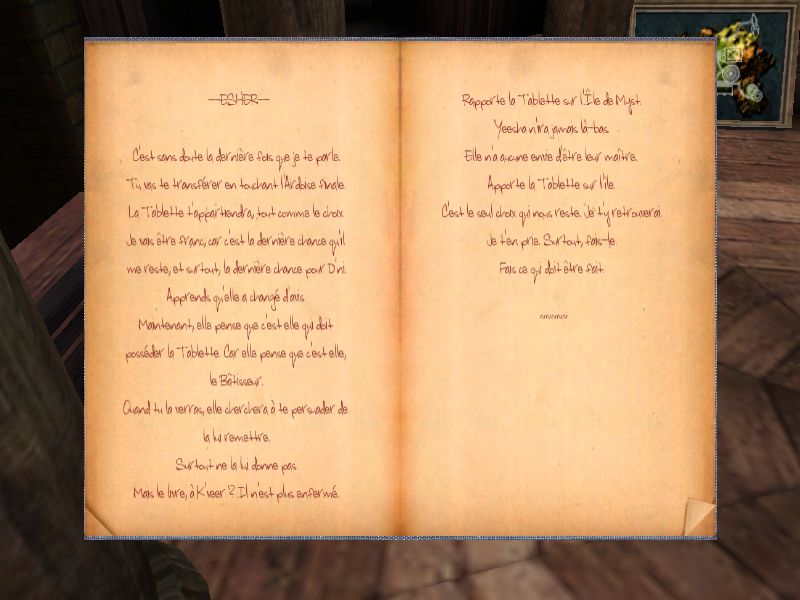 ESHER
C'est sans doute la dernière fois que je te parle.
Tu vas te transférer en touchant l'Ardoise finale.
La Tablette t'appartiendra, tout comme le choix.
Je vais être franc, car c'est la dernière chance qu'il
me reste, et surtout, la dernière chance pour D'ni.
Apprends qu'elle a changé d'avis.
Maintenant, elle pense que c'est elle qui doit
posséder la Tablette. Car elle pense que c'est elle,
le Bâtisseur.
Quand tu la verras, elle cherchera à te persuader de
la lui remettre.
Surtout ne la lui donne pas.
Mais le livre, à K'veer ? Il n'est plus enfermé.
Rapporte la Tablette sur l'Île de Myst.
Yeesha n'ira jamais là-bas.
Elle n'a aucune envie d'être leur maître.
Apporte la Tablette sur l'île.
C'est le seul choix qui nous reste. Je t'y retrouverai.
Je t'en prie. Surtout, fais-le.
Fais ce qui doit être fait.